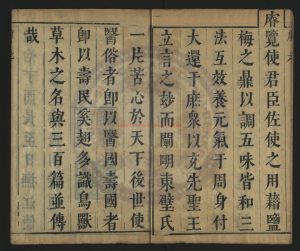 睿覽使君臣佐使之用藉鹽
梅之鼎以調五味皆和三
法互效養元氣于周身付
大還于庶衆以克先聖王
立言之妙而闡明東壁氏
一片苦心於天下後世使
醫俗者即以醫國壽國者
即以壽民奚翅多識鳥獸
草木之名與三百篇並傳
哉